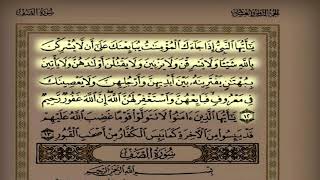 الجزء الثامن والعشرون
سُورَةُ الصَّفِّ
يَـٰٓأَيُّهَا ٱلنَّبِىُّ إِذَا جَآءَكَ ٱلْمُؤْمِنَـٰتُ يُبَايِعْنَكَ عَلَىٰٓ أَن لَّا يُشْرِكْنَ
بِٱللَّهِ شَيْـًٔا وَلَا يَسْرِقْنَ وَلَا يَزْنِينَ وَلَا يَقْتُلْنَ أَوْلَـٰدَهُنَّ وَلَا يَأْتِينَ
بِبُهْتَـٰنٍ يَفْتَرِينَهُۥ بَيْنَ أَيْدِيهِنَّ وَأَرْجُلِهِنَّ وَلَا يَعْصِينَكَ
فِى مَعْرُوفٍ فَبَايِعْهُنَّ وَٱسْتَغْفِرْ لَهُنَّ ٱللَّهَ إِنَّ ٱللَّهَ غَفُورٌ رَّحِيمٌ
١٢ يَـٰٓأَيُّهَا ٱلَّذِينَ ءَامَنُوا۟ لَا تَتَوَلَّوْا۟ قَوْمًا غَضِبَ ٱللَّهُ عَلَيْهِمْ
قَدْ يَئِسُوا۟ مِنَ ٱلْـَٔاخِرَةِ كَمَا يَئِسَ ٱلْكُفَّارُ مِنْ أَصْحَـٰبِ ٱلْقُبُورِ ١٣
سُورَةُ الصَّفِّ
بِسْمِ ٱللَّهِ ٱلرَّحْمَـٰنِ ٱلرَّحِيمِ